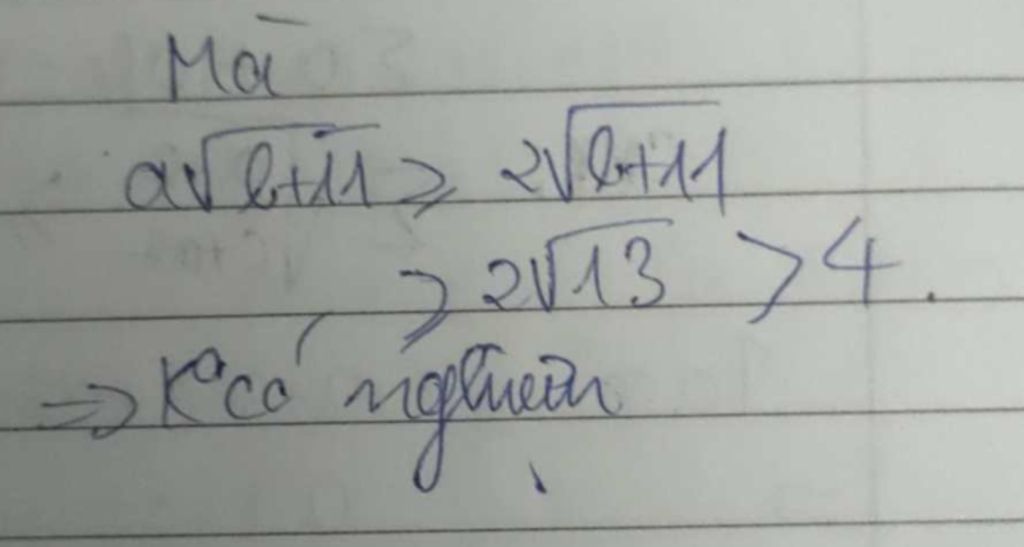 Mà
a√(b+11) ≥ 2√(b+11)
≥ 2√13 > 4.
=> K° có nghiệm